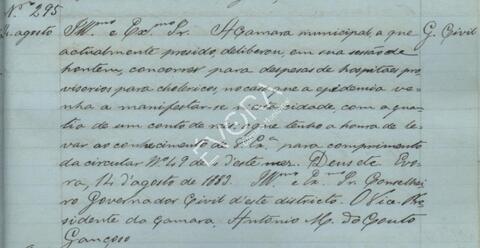 Nº 295
14 agosto Illmo e Exmo Sr. A Camara municipal, a que G. Civil
actualmente presido, deliberou, em sua sessão de
hontem, concorrer para despesas de hospitaes pro
visorios para cholericos, no caso que a epidemia ve
nha a manifestar-se n'esta cidade, com a quan
tia de um conto de reis; o que tenho a honra de le
var ao conhecimento de V. Exa para comprimento
da circular Nº 49 de d'este mez. Deus etc. Evo
ra, 14 d'agosto de 1883. Illmo e Exmo Sr. Conselhei
ro Governador Civil d'este districto. O Vice-Pre
sidente da Camara, Antonio M. do Couto
Gançoso
EVORA